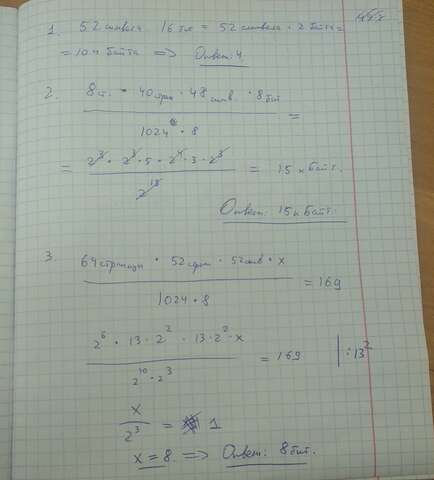 1. 52 символа 16 бит = 52 символа · 2 байта =
= 104 байта => Ответ: 4.
2. 8 ст. · 40 строк · 48 симв. · 8 бит
1024 · 8
=
= 2^3 · 2^3 · 5 · 2^4 · 3 · 2^3
2^13
= 15 кбайт.
Ответ: 15 кбайт.
3. 64 страницы · 52 строк · 52 симв · x
1024 · 8
= 169
2^6 · 13 · 2^2 · 13 · 2^2 · x
2^10 · 2^3
= 169 | : 13^2
x
2^3
= 1
x = 8. => Ответ: 8 бит.